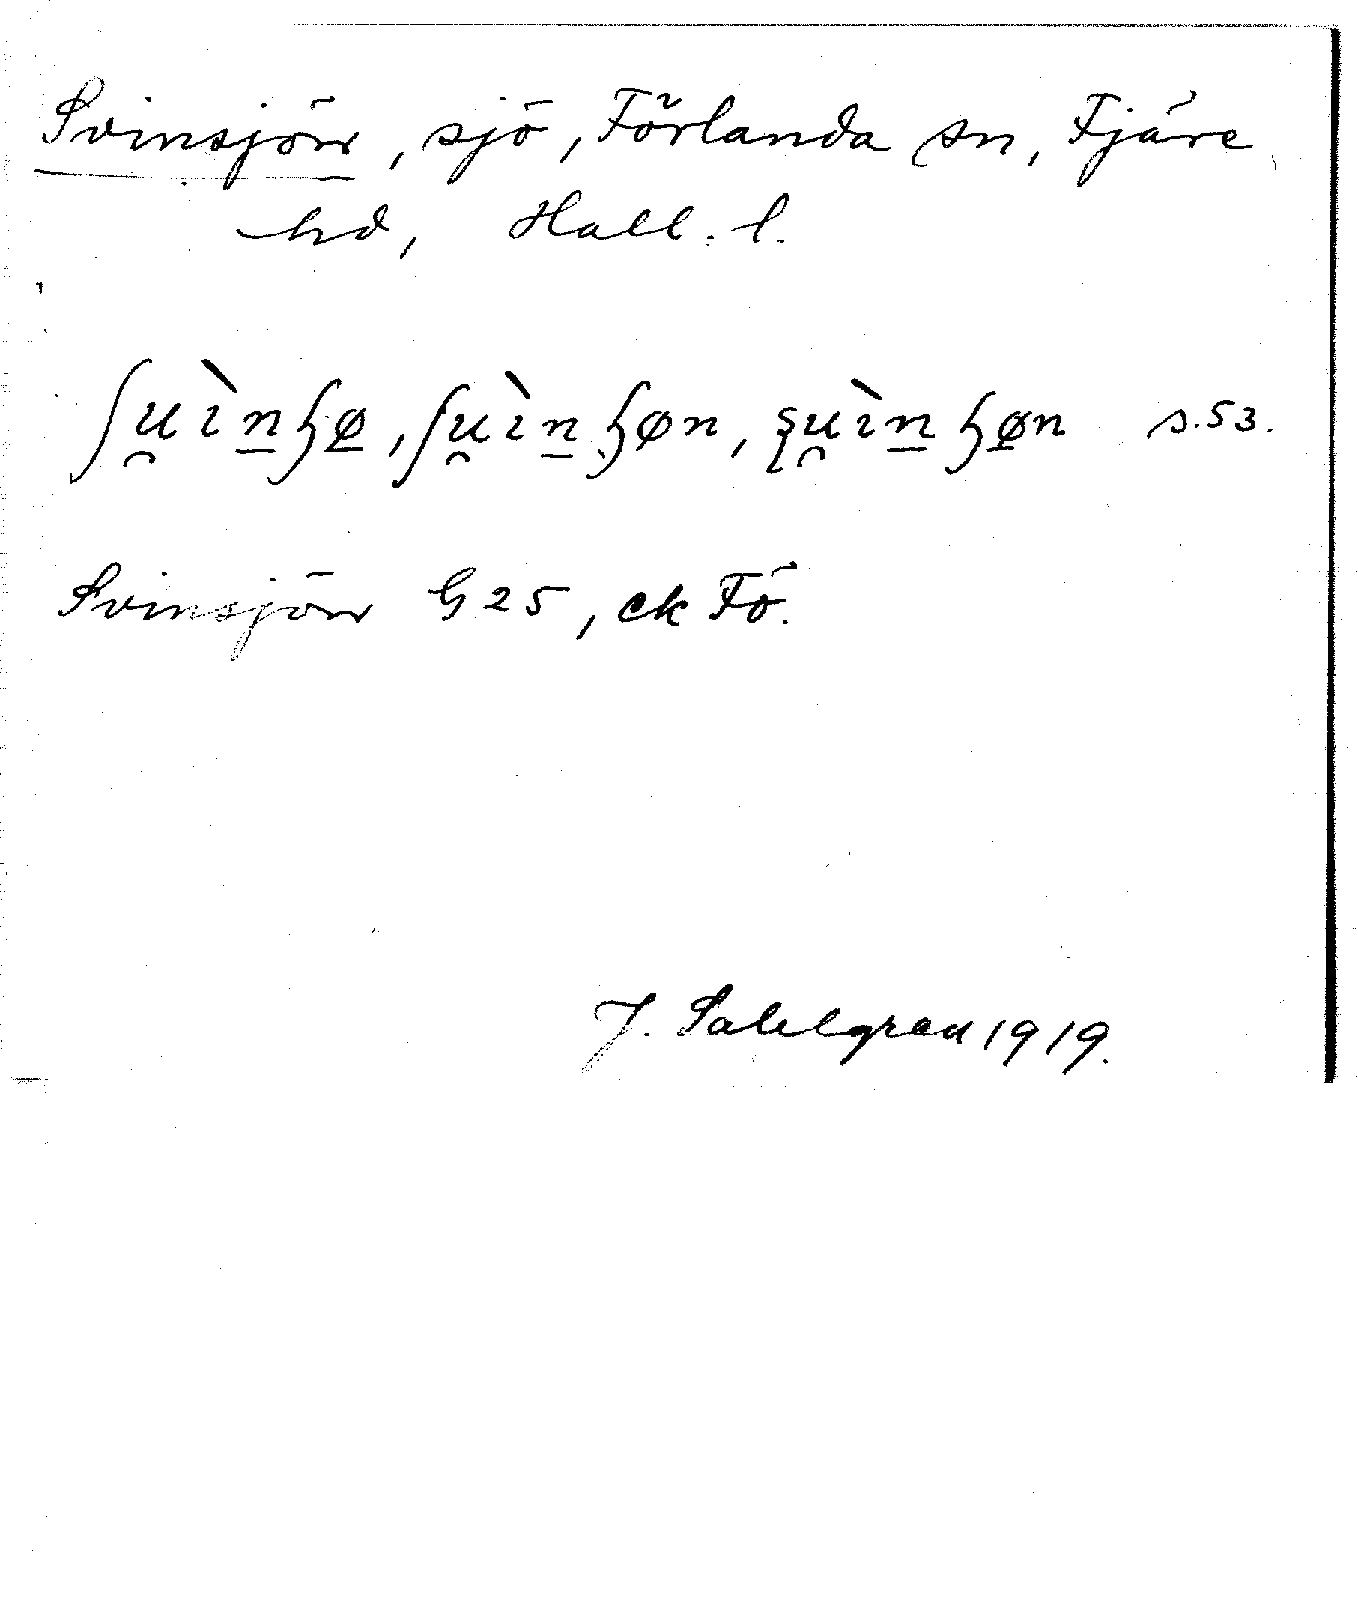 Svinsjön, sjö, Förlanda sn, Fjäre
hd, Hall. l.
ʃu̯ìn̲ɧø̲, ʃu̯ìn̲ɧøn, ʂu̯ìn̲ɧø̲n s.53.
Svinsjön G 25, ek Fö.
J. Sahlgren 1919.